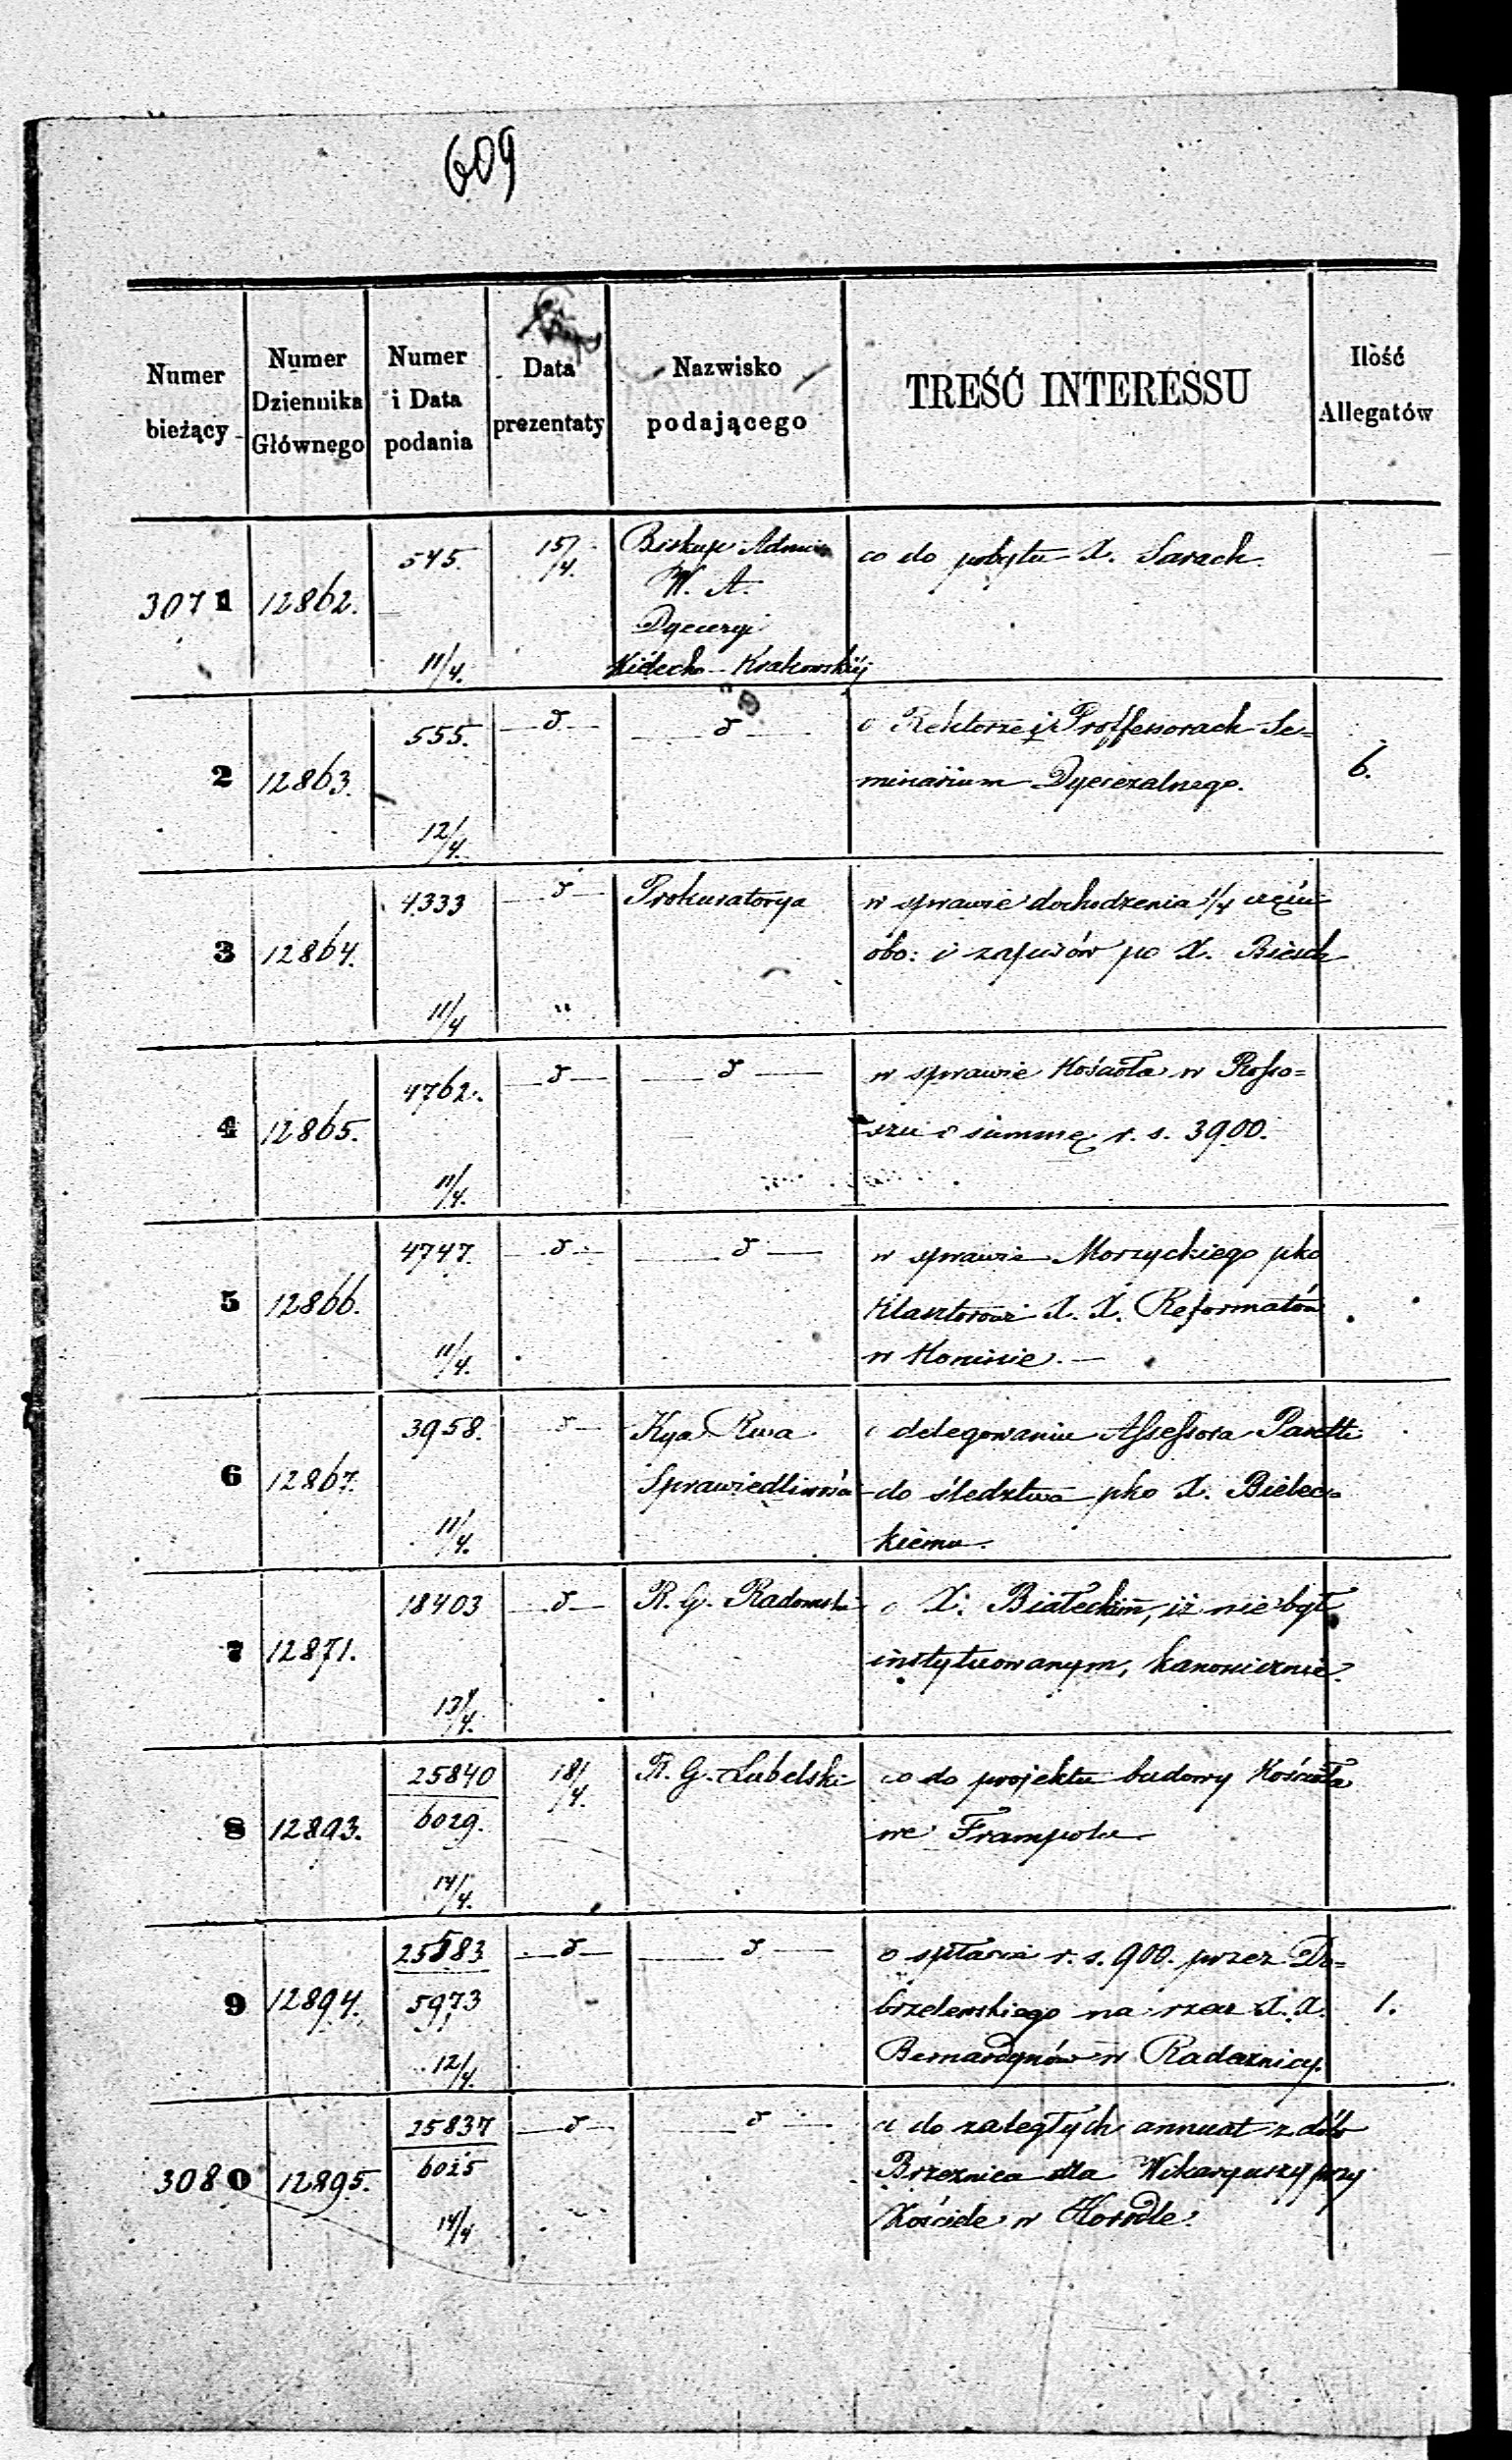 609
Numer bieżący | Numer Dziennika Głównego | Numer i Data podania | Data prezentaty | Nazwisko podającego | TREŚĆ INTERESSU | Ilość Allegatów
3071 | 12862. | 545. 11/4. | 15/4. | Biskup Admin W. A. Dyecezyi Kielecko-Krakowskiej | co do pobytu X. Sarach.
2 | 12863. | 555. 12/4. | —d— | —d— | o Rektorze i Proffessorach Se=
minarium Dyecezalnego. | 6.
3 | 12864. | 4333 11/4 | —d— " | Prokuratorya | w sprawie dochodzenia 1/4 części
obo: i zapisów po X.
4 | 12865. | 4762. 11/4. | —d— | —d— | w sprawie Kościoła w Rosso=
szu o summę r. s. 3900.
5 | 12866. | 4747. 11/4. | —d— | —d— | w sprawie Morzyckiego pko
Klasztorowi X. X. Reformatów
w Koninie. —
6 | 12867. | 3958. 11/4. | —d— | Kya Rwa Sprawiedliwości | o delegowaniu Assessora
do śledztwa pko X. Bielec=
kiemu.
7 | 12871. | 18403 13/4. | —d— | R. G. Radomski | o X. Białeckim, iż nie był
instytuowanym, kanonicznie.
8 | 12893. | 25840 6029. 14/4. | 18/4. | R. G. Lubelski | co do projektu budowy Kościoła
we Frampolu
9 | 12894. | 25883 5973 12/4. | —d— | —d— | o spłacie r. s. 900. przez Do=
brzelewskiego na rzecz X. X.
Bernardynów w Radecznicy. | 1.
3080 | 12895. | 25837 6025 14/4 | —d— | —d— | co do zaległych annuat z dóbr
Brzeznica dla Wikaryuszy przy
Kościele w Horodle.